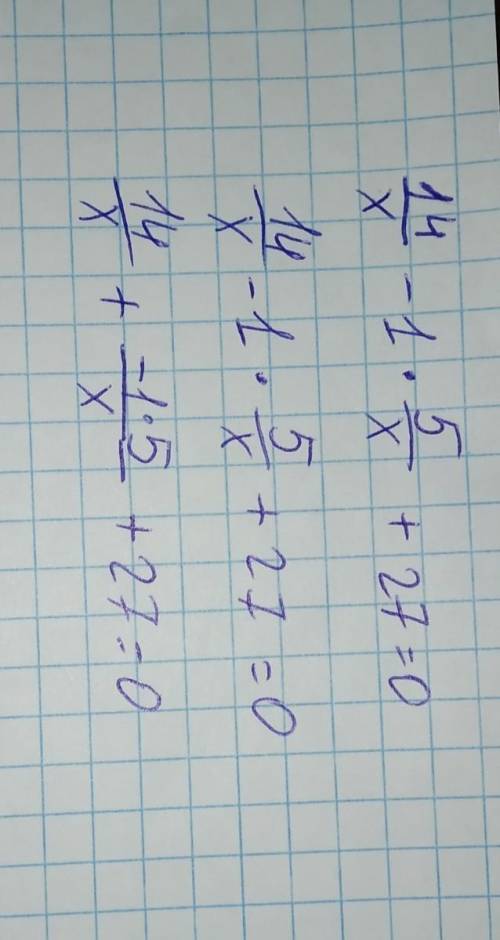 14/x - 1 · 5/x + 27 = 0
14/x - 1 · 5/x + 27 = 0
14/x + -1·5/x + 27 = 0